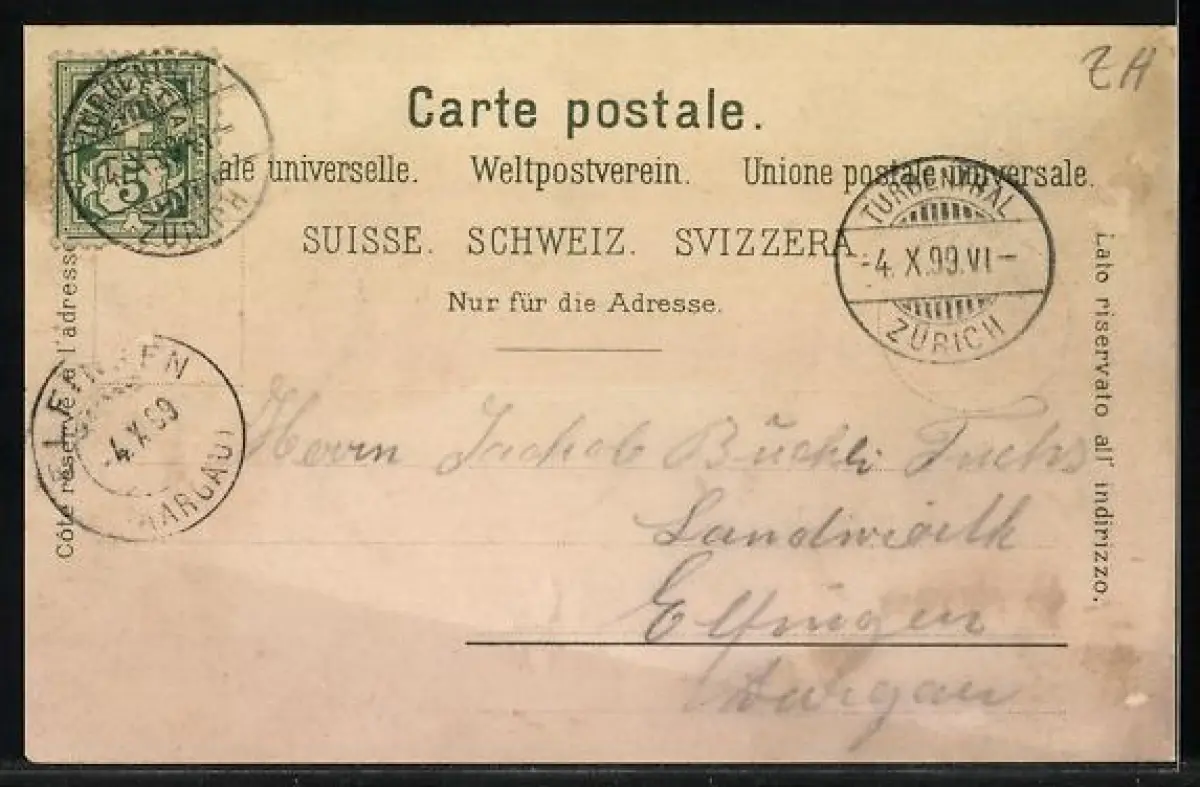 ZH
Carte postale.
ale universelle. Weltpostverein. Unione postale universale.
SUISSE. SCHWEIZ. SVIZZERA.
Nur für die Adresse.
5
ZÜRICH
TURBENTHAL
-4. X.99.VI-
ZÜRICH
Côté réservé à l'adresse
Lato riservato all' indirizzo.
-4.X.99
(AARGAU)
Herrn Jachob Büchli Fuchs
Landwirth
Elfingen
Aargau